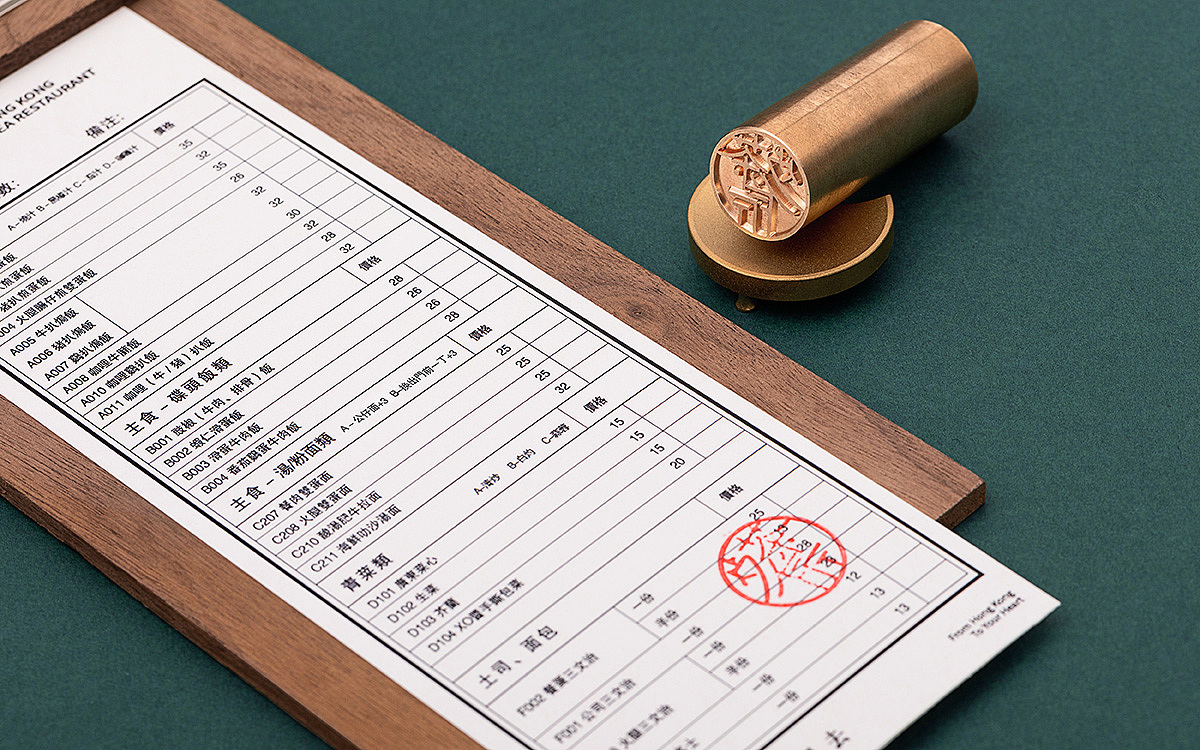 NG KONG
EA RESTAURANT
備注:
數:
A – 燒汁 B – 黑椒汁 C – 茄汁 D –
價格
35
煎蛋飯 32
豬扒煎蛋飯 35
004 火腿腸仔煎雙蛋飯 26
A005 牛扒焗飯 32
A006 豬扒焗飯 32
A007 雞扒焗飯 30
A008 咖喱牛腩飯 32
A010 咖喱雞扒飯 28
A011 咖喱 ( 牛 / 豬 ) 扒飯 32
主食 – 碟頭飯類 價格
B001 豉椒 ( 牛肉、排骨 ) 飯 28
B002 蝦仁滑蛋飯 26
B003 滑蛋牛肉飯 26
B004 番茄雞蛋牛肉飯 28
主食 – 湯/粉面類 A – 公仔面+3 B–換出門前一丁+3 價格
C207 餐肉雙蛋面 25
C208 火腿雙蛋面 25
C210 酸湯肥牛拉面 25
C211 海鮮叻沙湯面 32
青菜類 A–清炒 B–白灼 C–蒜蓉 價格
D101 廣東菜心 15
D102 生菜 15
D103 芥蘭 15
D104 XO醬手撕包菜 20
土司、面包 價格
F002 餐蛋三文治 一份 25
半份
F001 公司三文治 一份 28
一份
火腿三文治 半份 12
一份 13
一份 13
去
From Hong Kong
To Your Heart